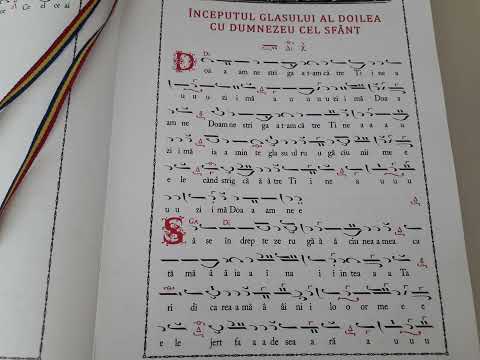 ÎNCEPUTUL GLASULUI AL DOILEA
CU DUMNEZEU CEL SFÂNT
Di
D oa a am ne stri ga a t am că tre Ti i ne a
u u u zi i mă a u u u u zi i mă Doa a
am ne Doam ne stri ga a t am că tre Ti ne a a a u
zi i mă ia a min te gla sul ru u gă ciu nii me e
e le când strig că ă ă tre Ti i ne a u u u
u u zi i mă Doa a am ne e
Ga Di
S ă se în drep te ze ru gă ă ă ciu nea mea cu
tă mâ â ia a i na i i in tea a a Ta
ri di ca rea a mâ â i ni i lo o or me e e
e le jert fa a a de sea a ră a u u u